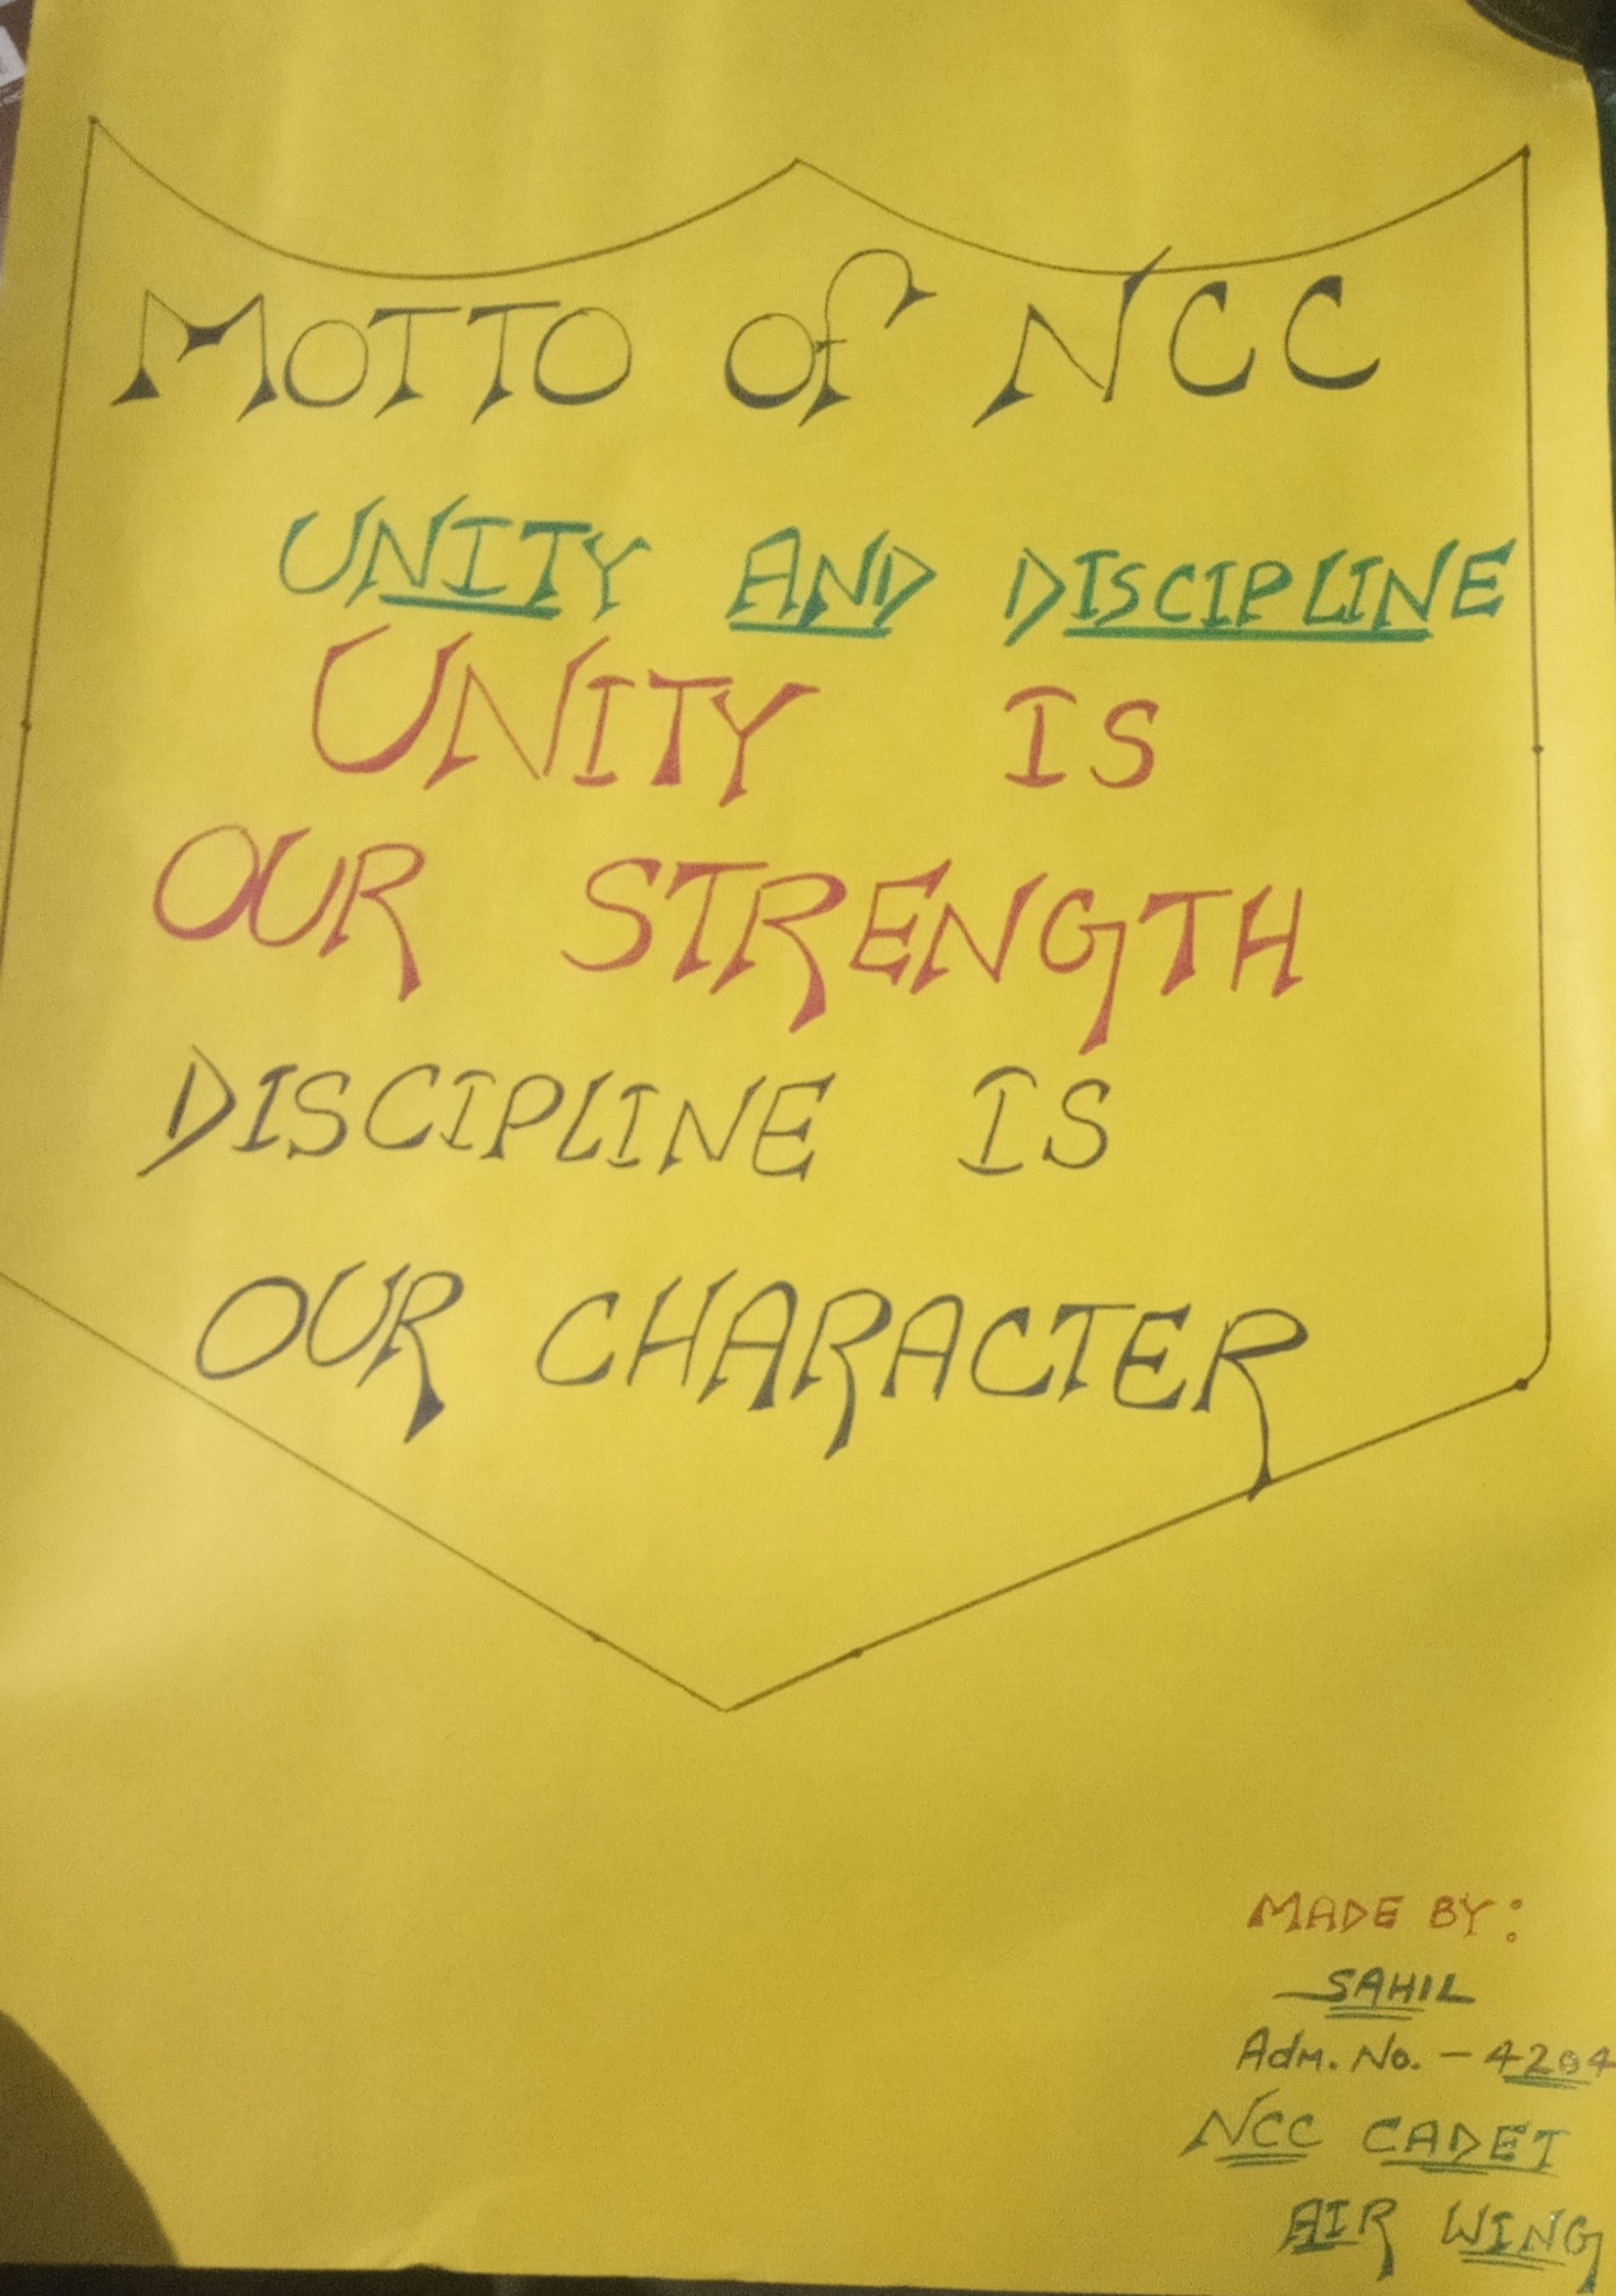 MOTTO Of NCC
UNITY AND DISCIPLINE
UNITY IS
OUR STRENGTH
DISCIPLINE IS
OUR CHARACTER
MADE BY:
SAHIL
Adm. No. - 4204
NCC CADET
AIR WING